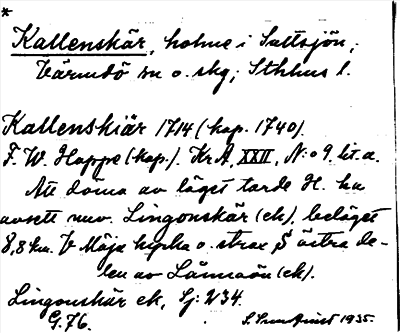 *
Kallenskär, holme i Saltsjön,
Värmdö sn o. skg, Sthlms l.
Kallenskiär 1714 (kop. 1740).
F. W. Hoppe (kop.). KrA, XXII, N:o 9. lit. a.
Att döma av läget torde H. ha
avsett nuv. Lingonskär (ek), beläget
8,8 km. V Möja kyrka o. strax S östra de-
len av Lännaön (ek).
Lingonskär ek, Sj: 234.
G. 76. 1935.